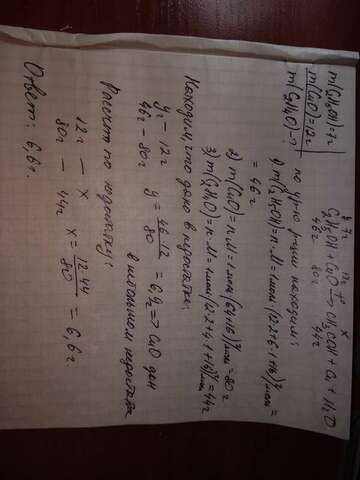 m(C₂H₅OH)=7г
m(CuO)=12г
m(C₂H₄O)-?
y 7г 12г x
C₂H₅OH + CuO → CH₃COH + Cu + H₂O
46г 80г 44г
по ур-ю р-ции находим:
1) m(C₂H₅OH)=n·M=1моль(12·2+6·1+16)г/моль=
=46г
2) m(CuO)=n·M=1моль(64+16)г/моль=80г
3) m(C₂H₄O)=n·M=1моль(12·2+4·1+16)г/моль=44г
Находим, что дано в недостатке:
yг - 12г
46г - 80г
y = 46·12/80 = 6,9г => CuO дан
в небольшом недостатке
Расчет по недостатку:
12г - x
80г - 44г
x = 12·44/80 = 6,6г.
Ответ: 6,6г.